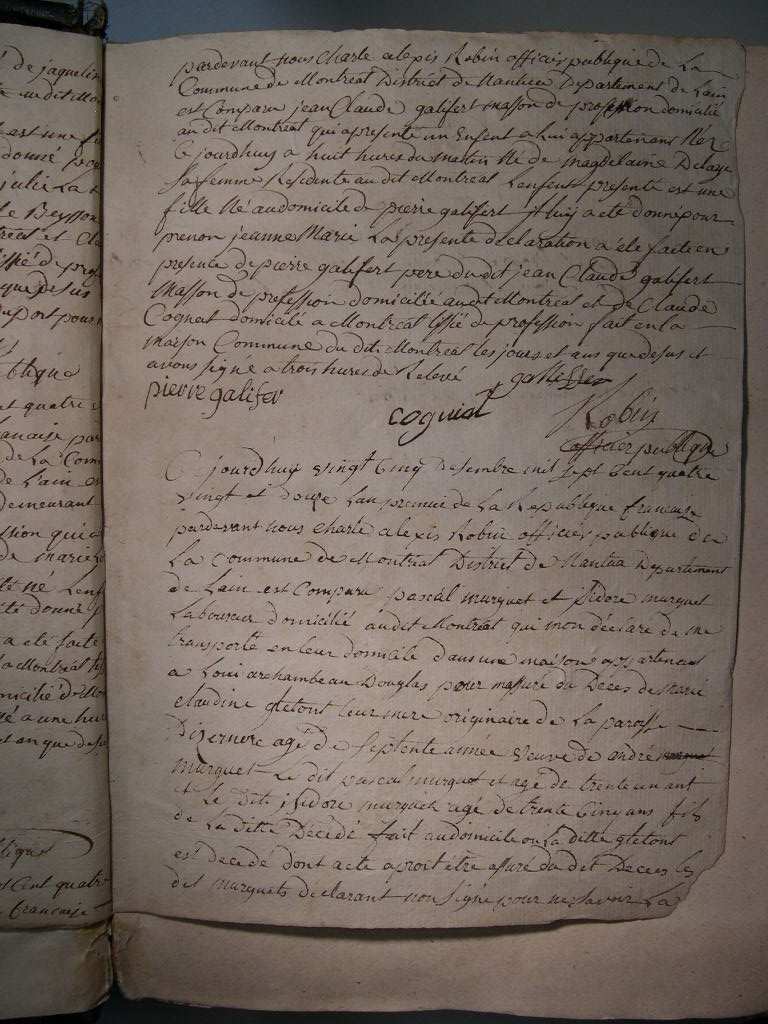 pardevant nous Charle alexis Robin officier publique de La
Commune de Montreal District de Nantua Departement de Lain
est Comparu jean Claude galifert masson de profession domicilié
au dit Montreal qui a presenté un Enfent a Lui appartenans Née
Ce jourdhuy a huit hures du matin Né de Magdelaine Delaye
sa femme Residente au dit Montreal Lenfent presenté est une
fille Né au domicile de pierre galifert jl luy a eté donné pour
prenon jeanne Marie La presente declaration a eté faite en
presence de pierre galifert pere du dit jean Claude galifert
masson de profession domicilié au dit Montreal et de Claude
Cognat domicilé a Montreal tissié de profession fait en la
maison Commune du dit Montreal les jours et ans que desus et
avons signé a trois hures de Relevé
pierre galifer
cogniat
Robin
officier publique
Ce jourdhuy vingt Cinq Desembre mil sept Cent quatre
vingt et douze Lan premier de La Republique francaise
pardevant nous Charle alexis Robin officier publique de
La Commune de Montreal District de Nantua Departement
de Lain est Comparu pascal murquet et jsidore murquet
Laboureur domicilié au dit Montreal qui mon déclaré de me
transporté en leur domicile dans une maison appartenant
a Loui archambeau Douglas pour massuré du Déces de Marie
claudine gletont leur mere originaire de La paroisse
Dizernore agé de septente année veuve de andré
murquet Le dit pascal murquet et agé de trente un ant
et Le Dit jsidore murquet agé de trente Cinq ans fils
de La ditte Décédé fait au domicile ou La ditte gletont
est decedé dont acte apres être assuré du dit Deces les
dit murquets declarant non signé pour ne savoir La